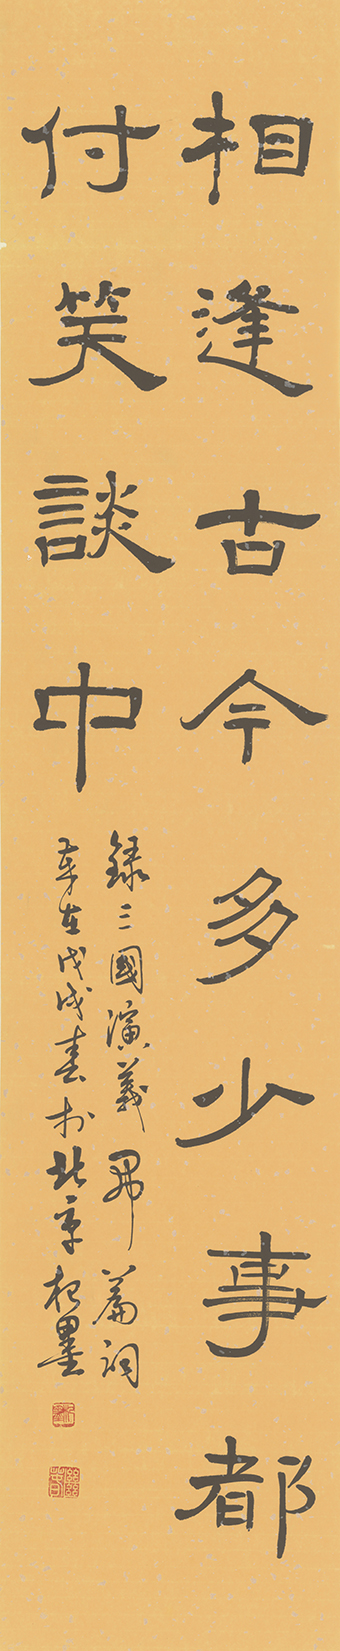 相逢古今多少事都
付笑談中
錄三國演義開篇詞
歲在戊戌春於北京 墨